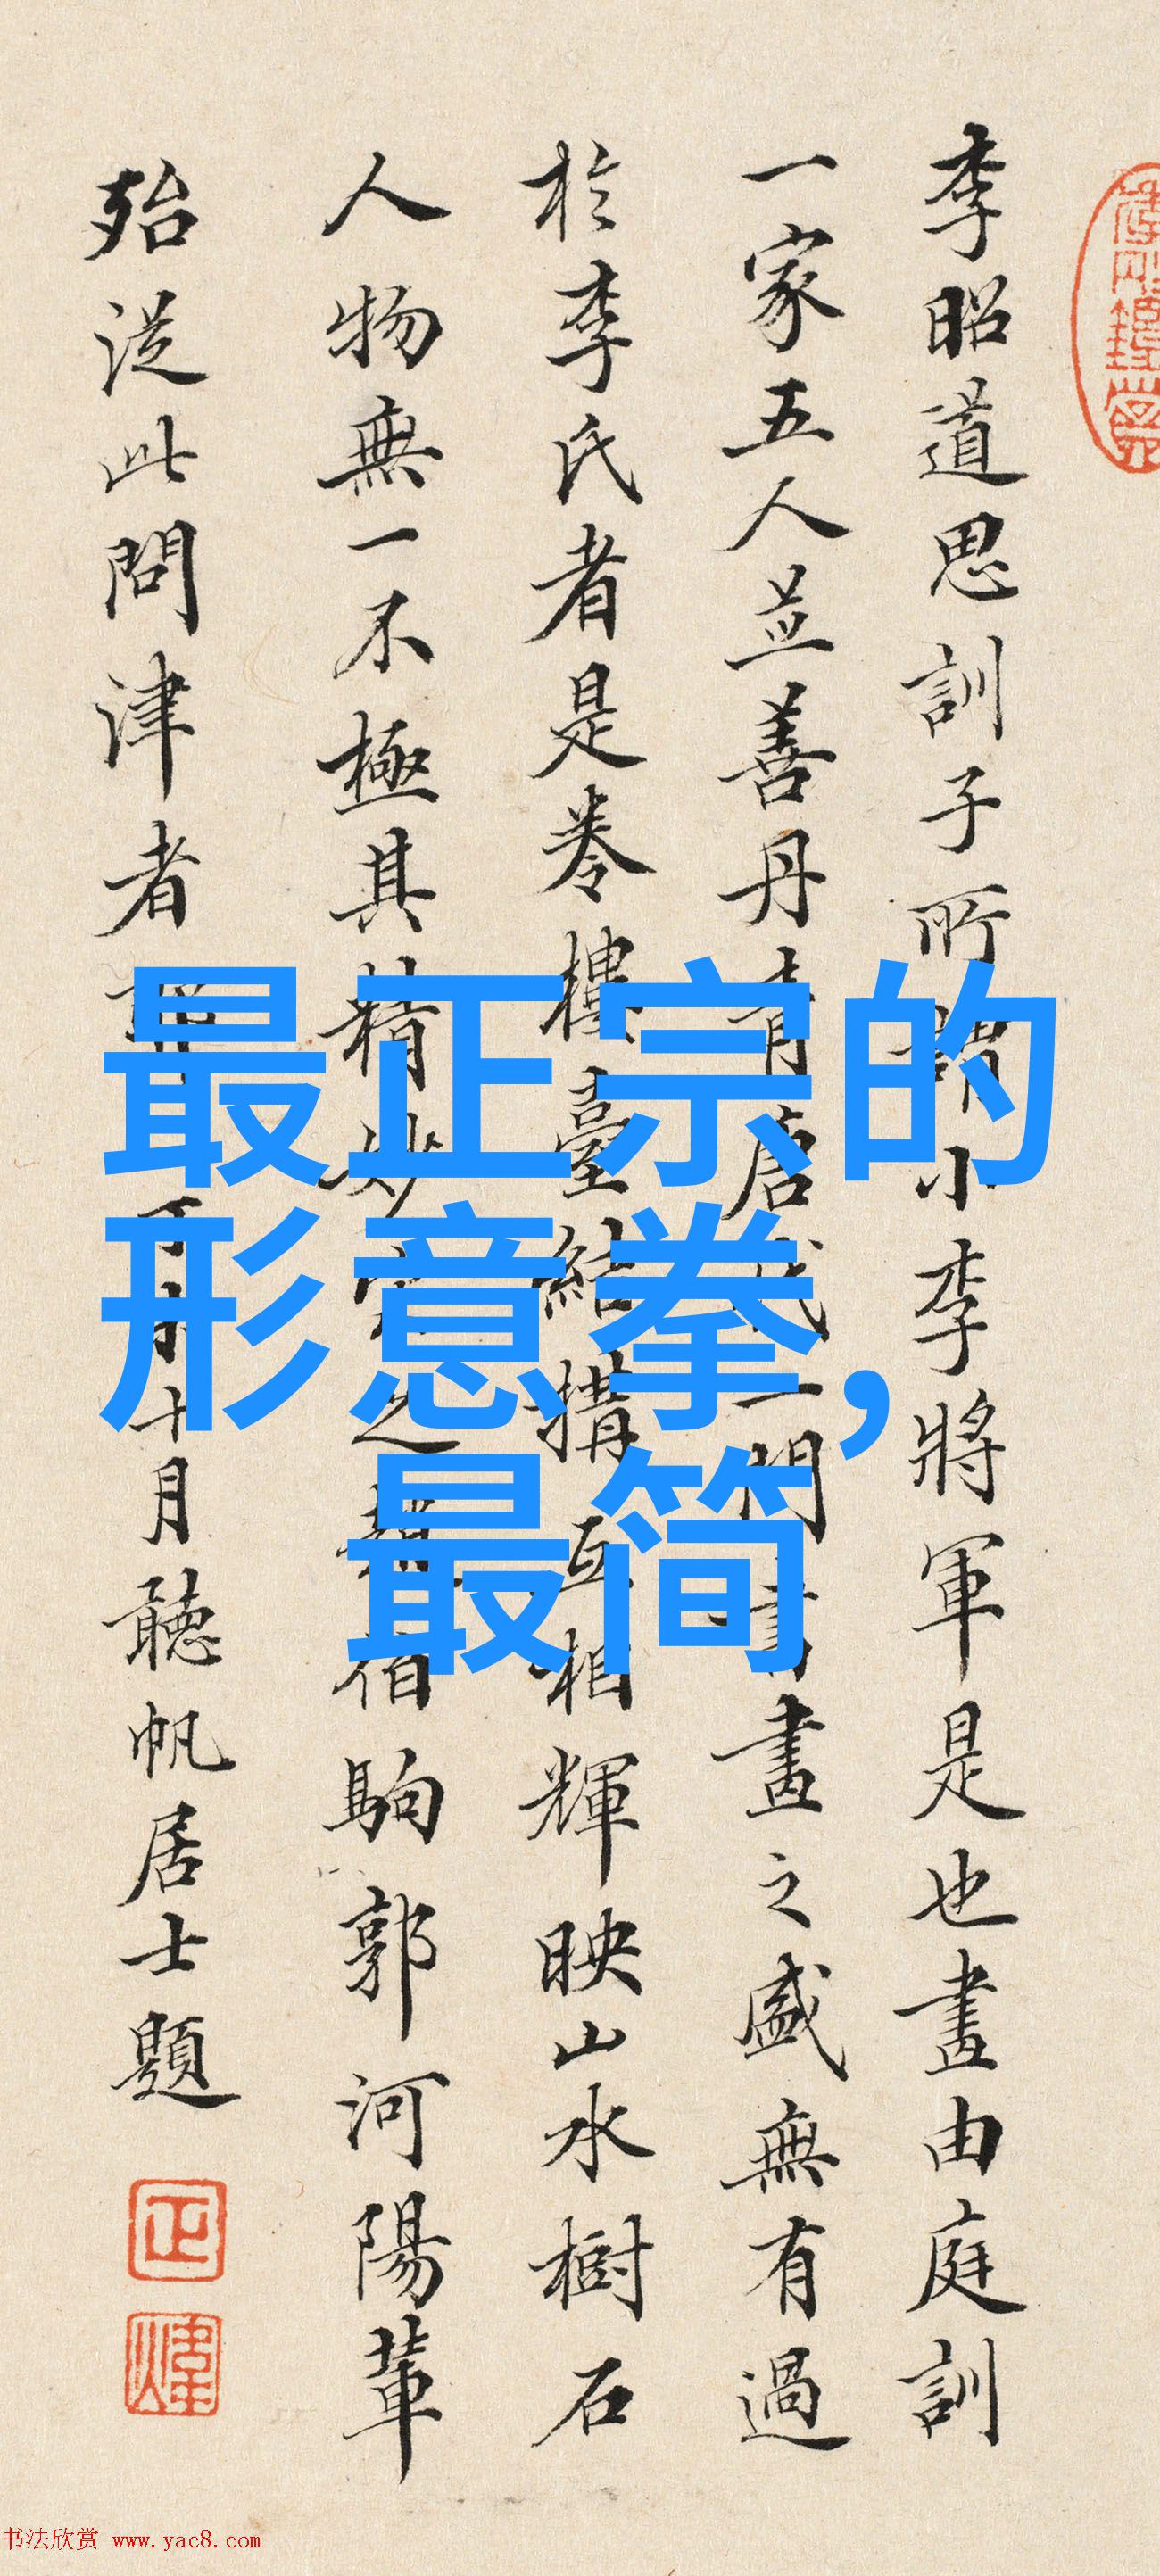 李昭道思訓子所謂小李將軍是也畫由庭訓
一家五人並善丹青唐代一門書畫之盛無有過
於李氏者是卷樓臺結搆互相輝映山水樹石
人物無一不極其精妙宋之趙伯駒郭河陽輩
殆從此問津者十月聽帆居士題
正
煒
最正宗的
形意拳,
最简
书法欣赏 www.yac8.com